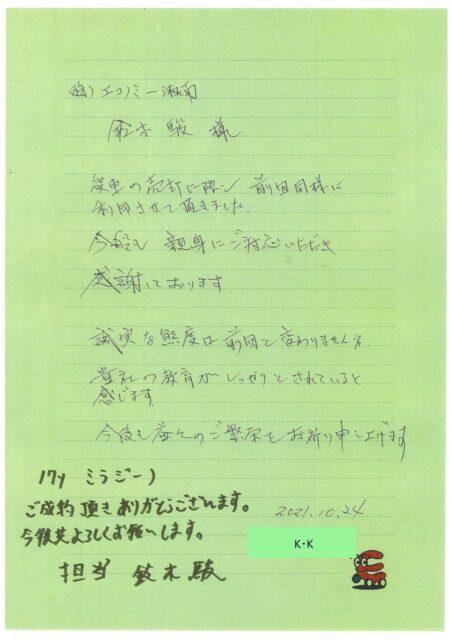 (株)エコノミー湘南
鈴木 駿 様
愛車の売却に際し 前回同様に
利用させて頂きました。
今般も 親身にご対応いただき
感謝しております。
誠実な態度は前回と変わりませんネ
貴社の教育がしっかりとされていると
感じます。
今後も益々のご繁栄をお祈り申し上げます
17y ミラジーノ
ご成約頂きありがとうございます。
今後共よろしくお願いします。
担当 鈴木駿
2021.10.24
K・K